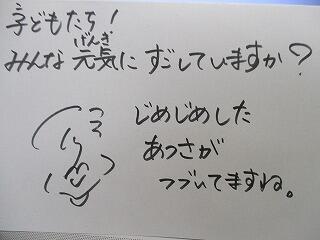 子どもたち!
げんき
みんな元気にすごしていますか?
じめじめした
あつさが
つづいてますね。